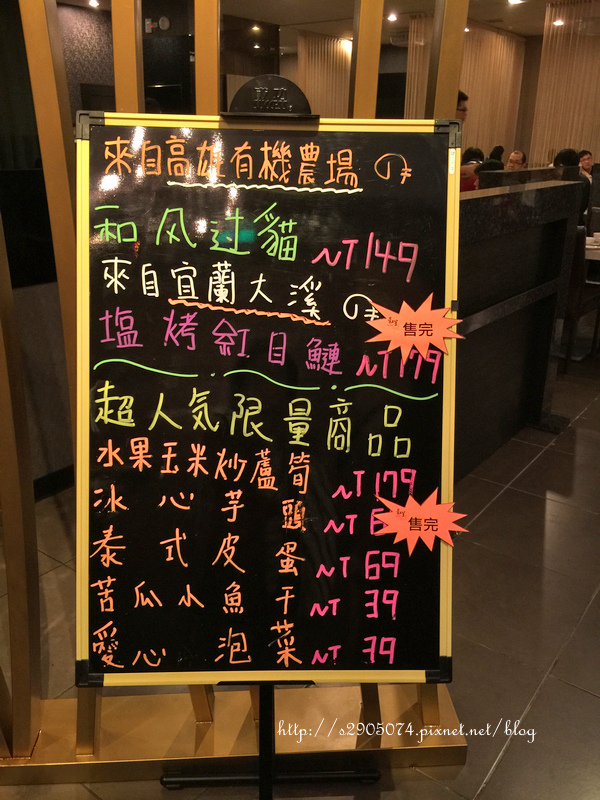 來自高雄有機農場の
和风过貓 NT149
來自宜蘭大溪の
塩烤紅目鰱 NT179
售完
超人気限量商品
水果玉米炒蘆筍 NT179
冰心芋頭 NT
售完
泰式皮蛋 NT69
苦瓜小魚干 NT39
愛心泡菜 NT39
http://s2905074.pixnet.net/blog